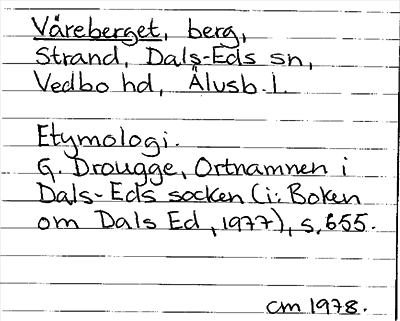 Våreberget, berg,
Strand, Dals-Eds sn,
Vedbo hd, Älvsb. l.
Etymologi.
G. Drougge, Ortnamnen i
Dals-Eds socken (i: Boken
om Dals Ed, 1977), s. 655.
cm 1978.